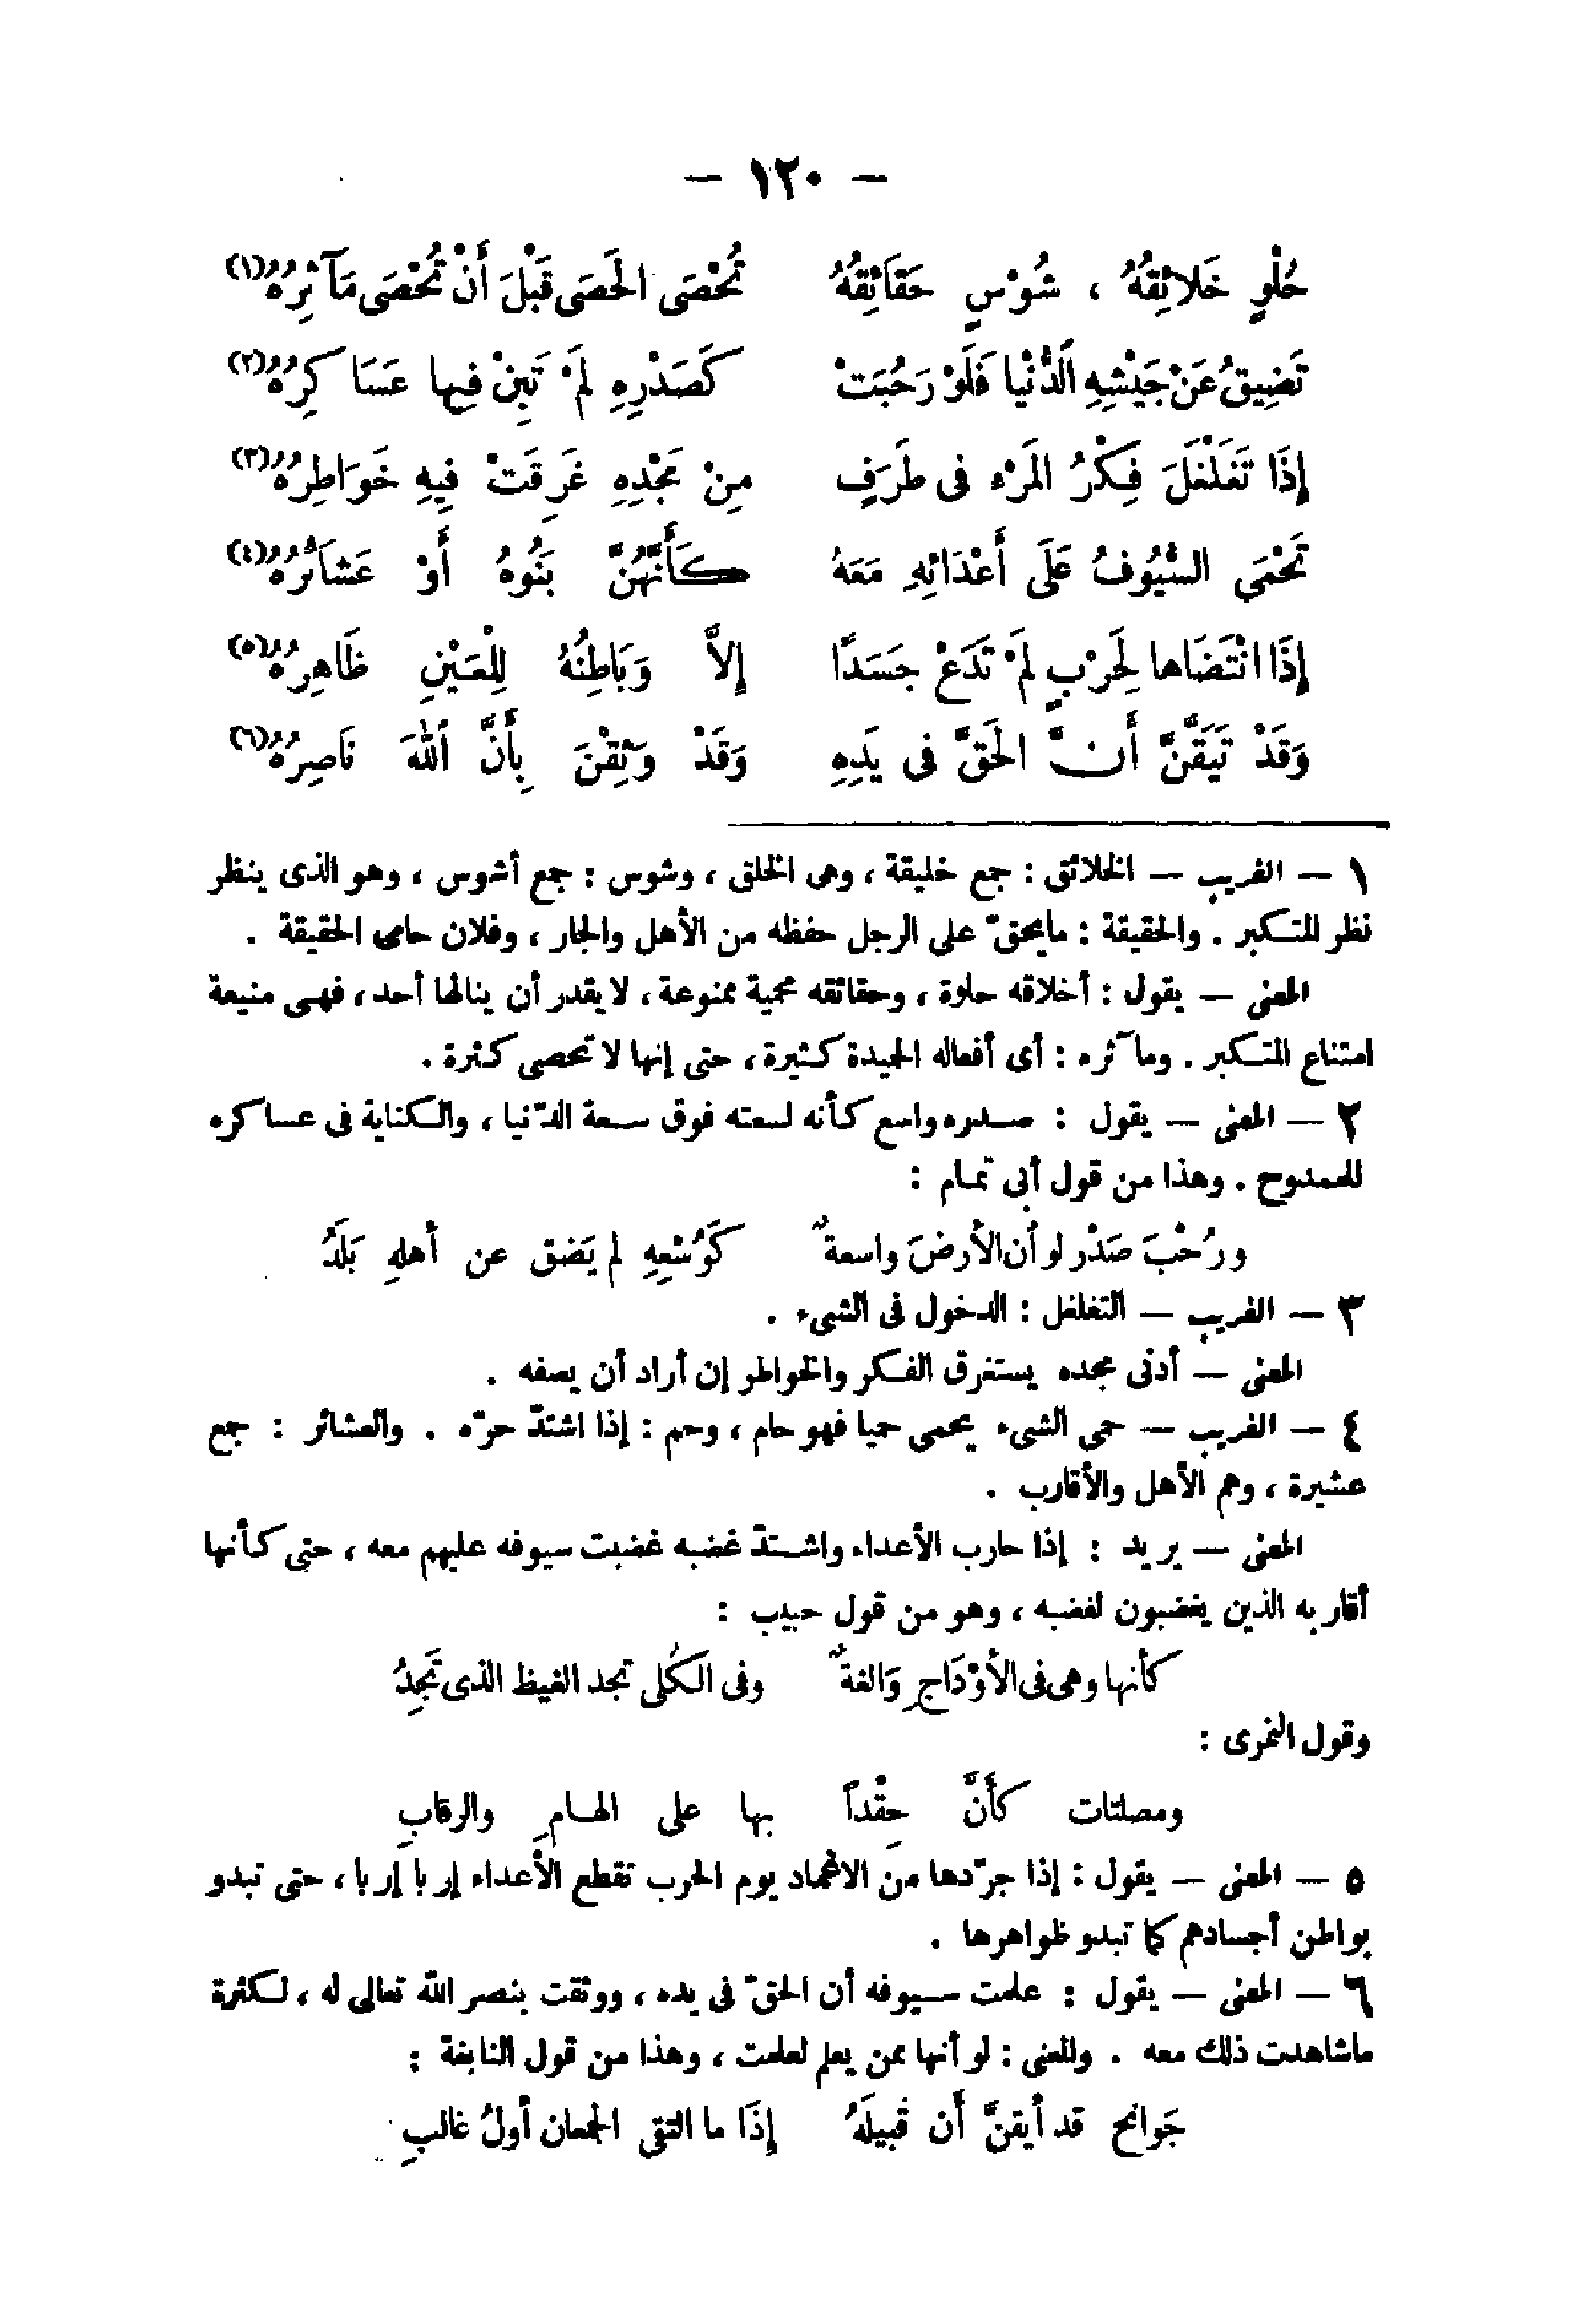 — ١٢٠ —
حُلْوٍ خَلائِقُهُ ، شُوْسٍ حَقَائِقُهُ تُحْصَى الحَصَى قَبْلَ أَنْ تُحْصَى مَآثِرُهُ(١)
تَضِيقُ عَنْ جَيْشِهِ الدُّنْيا فَلَوْ رَحُبَتْ كَصَدْرِهِ لَمْ تَبِنْ فيها عَسَاكِرُهُ(٢)
إِذَا تَغَلْغَلَ فِكْرُ المَرْءِ فى طَرَفٍ مِنْ مَجْدِهِ غَرِقَتْ فِيهِ خَوَاطِرُهُ(٣)
تَحْمَى السُّيُوفُ عَلَى أَعْدَائِهِ مَعَهُ كَأَنَّهُنَّ بَنُوهُ أَوْ عَشائِرُهُ(٤)
إِذَا انْتَضَاها لِحَرْبٍ لَمْ تَدَعْ جَسَدًا إِلاَّ وَبَاطِنُهُ لِلْعَيْنِ ظَاهِرُهُ(٥)
وَقَدْ تَيَقَّنَّ أَنَّ الحَقَّ فى يَدِهِ وَقَدْ وَثِقْنَ بِأَنَّ اللهَ نَاصِرُهُ(٦)
١ — الغريب — الخلائق : جمع خليقة ، وهى الخلق ، وشوس : جمع أشوس ، وهو الذى ينظر
نظر المتكبر . والحقيقة : ما يحقّ على الرجل حفظه من الأهل والجار ، وفلان حامى الحقيقة .
المعنى — يقول : أخلاقه حلوة ، وحقائقه محمية ممنوعة ، لا يقدر أن ينالها أحد ، فهى منيعة
امتناع المتكبر . ومآثره : أى أفعاله الجيدة كثيرة ، حتى إنها لا تحصى كثرة .
٢ — المعنى — يقول : صدره واسع كأنه لسعته فوق سعة الدّنيا ، والكناية فى عساكره
للممدوح . وهذا من قول أبى تمام :
ورُحْبَ صَدْر لو أن الأرضَ واسعةٌ كَوُسْعِهِ لم يَضق عن أهلهِ بَلَدُ
٣ — الغريب — التغلغل : الدخول فى الشىء .
المعنى — أدنى مجده يستغرق الفكر والخواطر إن أراد أن يصفه .
٤ — الغريب — حمى الشىء يحمى حميا فهو حام ، وحم : إذا اشتدّ حرّه . والعشائر : جمع
عشيرة ، وهم الأهل والأقارب .
المعنى — يريد : إذا حارب الأعداء واشتدّ غضبه غضبت سيوفه عليهم معه ، حتى كأنها
أقاربه الذين يغضبون لغضبه ، وهو من قول حبيب :
كأنها وهى فى الأوْدَاجِ وَالغةٌ وفى الكُلى تجد الغيظ الذى تَجِدُ
وقول النمرى :
ومصلتات كأَنَّ حِقْداً بها على الهامِ والرقابِ
٥ — المعنى — يقول : إذا جرّدها من الاغماد يوم الحرب تقطع الأعداء إربا إربا ، حتى تبدو
بواطن أجسادهم كما تبدو ظواهرها .
٦ — المعنى — يقول : علمت سيوفه أن الحقّ فى يده ، ووثقت بنصر اللّه تعالى له ، لكثرة
ماشاهدت ذلك معه . والمعنى : لو أنها ممن يعلم لعلمت ، وهذا من قول النابغة :
جَوانح قد أيقنَّ أَن قبيلَهُ إِذَا ما التقى الجمعان أولُ غالبِ